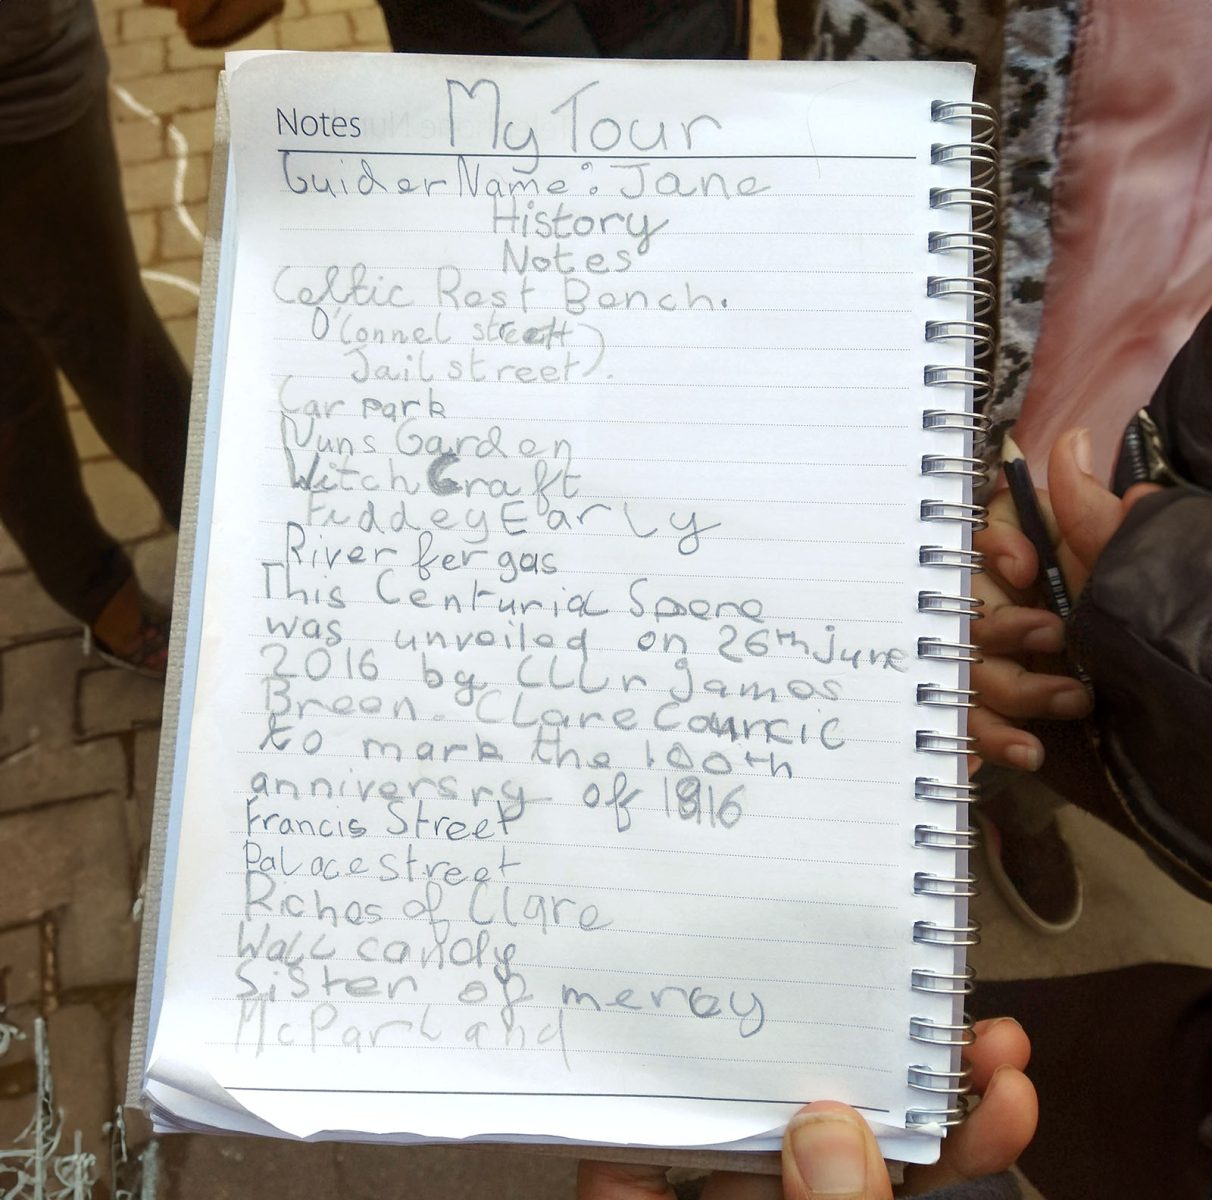 Notes My Tour
Guider Name: Jane
History
Notes
Celtic Rest Bench.
O'Connel street)
Jail street).
Car park
Nuns Garden
Witch Craft
Fiddey Early
River fergas
This Centurial Spere
was unveiled on 26th june
2016 by Cllr James
Breen. Clare Councic
to mark the 100th
anniversry of 1916
Francis Street
Palace street
Riches of Clare
Wall candy
Sister of mercy
McParland